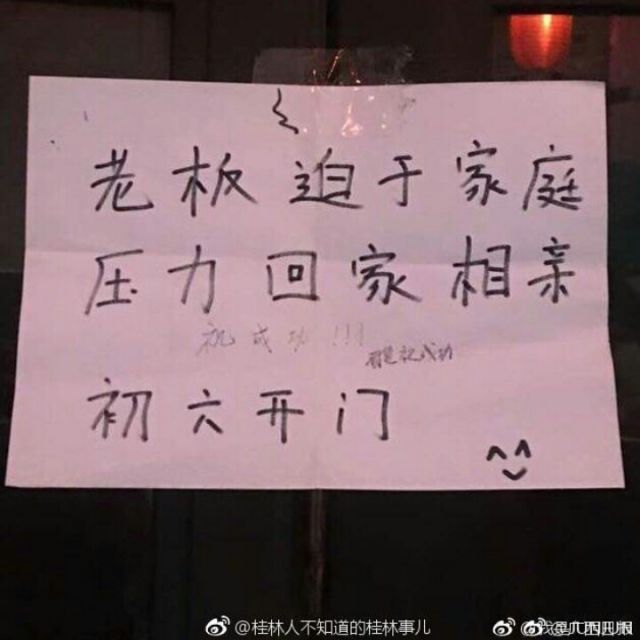 老板迫于家庭
压力回家相亲
祝成功!!!
祝成功
初六开门
@桂林人不知道的桂林事儿